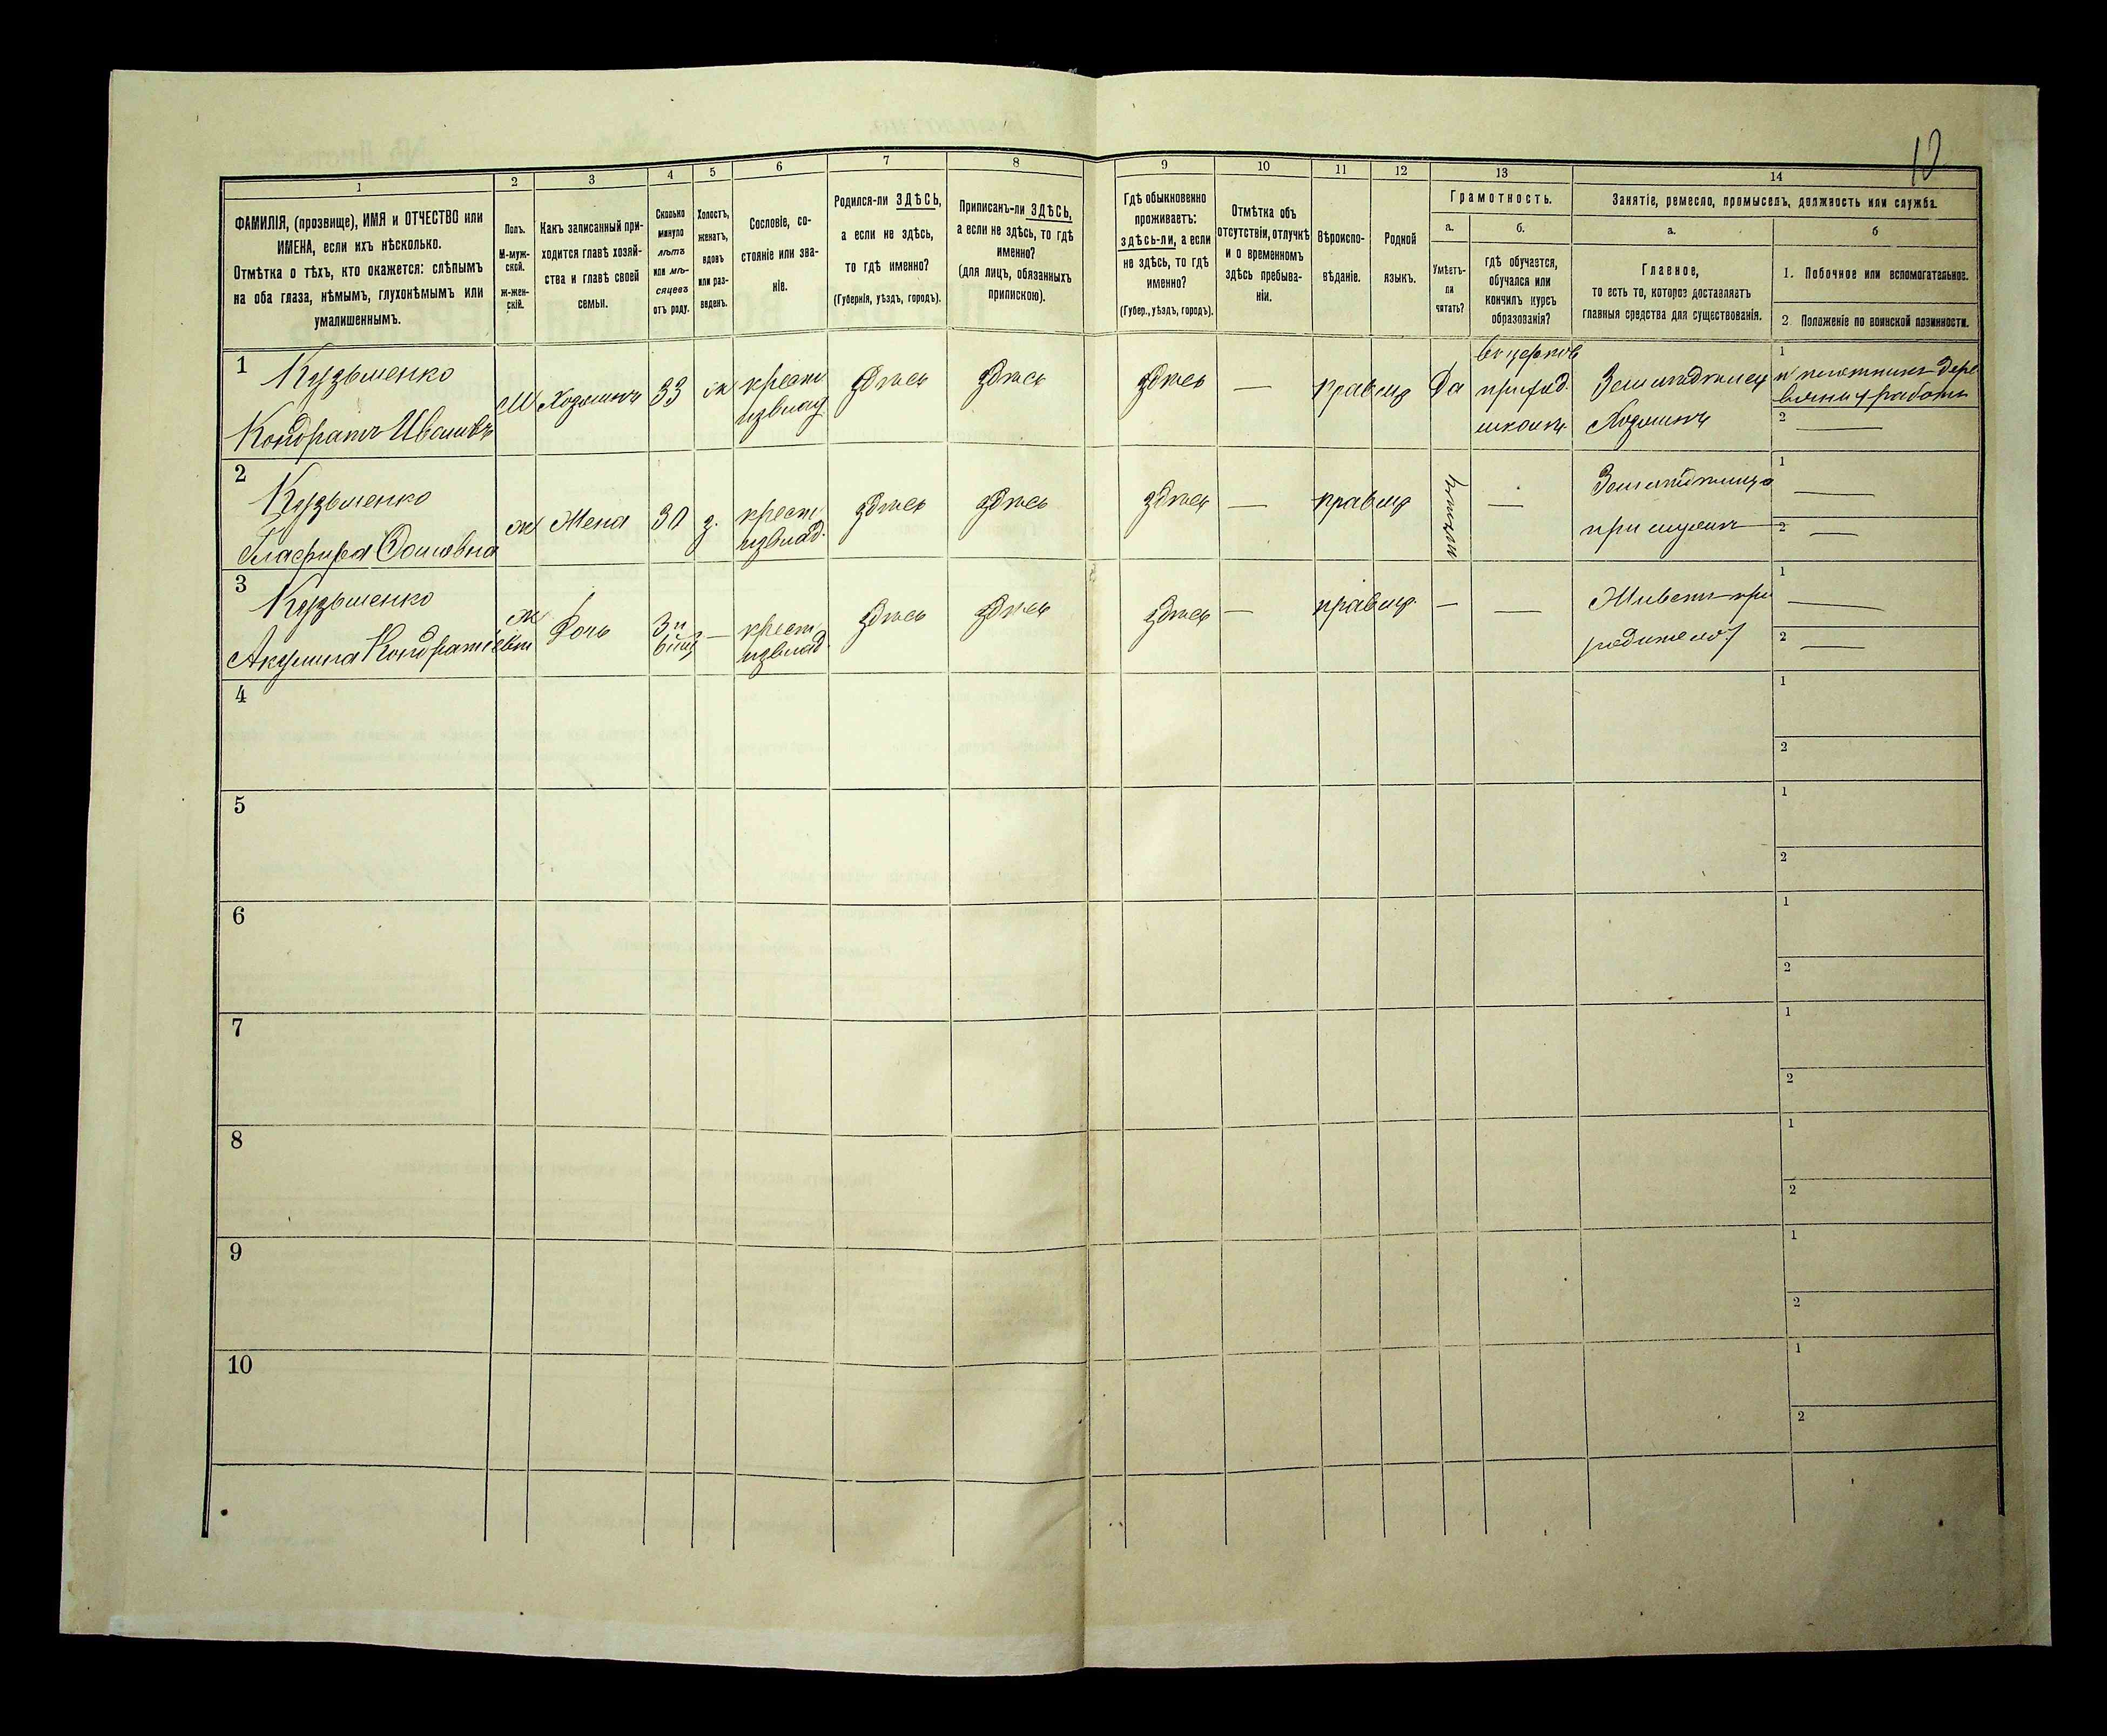 10
1
2
3
4
5
6
7
8
9
10
11
12
13
14
ФАМИЛІЯ, (прозвище), ИМЯ и ОТЧЕСТВО или
ИМЕНА, если ихъ нѣсколько.
Отмѣтка о тѣхъ, кто окажется: слѣпымъ
на оба глаза, нѣмымъ, глухонѣмымъ или
умалишеннымъ.
Полъ.
М-муж-
ской.
ж-жен-
скій.
Какъ записанный при-
ходится главѣ хозяй-
ства и главѣ своей
семьи.
Сколько
минуло
лѣтъ
или мѣ-
сяцевъ
отъ роду.
Холостъ,
женатъ,
вдовъ
или раз-
веденъ.
Сословіе, со-
стояніе или зва-
ніе.
Родился-ли ЗДѢСЬ,
а если не здѣсь,
то гдѣ именно?
(Губернія, уѣздъ, городъ).
Приписанъ-ли ЗДѢСЬ,
а если не здѣсь, то гдѣ
именно?
(для лицъ, обязанныхъ
припискою).
Гдѣ обыкновенно
проживаетъ:
здѣсь-ли, а если
не здѣсь, то гдѣ
именно?
(Губер., уѣздъ, городъ).
Отмѣтка объ
отсутствіи, отлучкѣ
и о временномъ
здѣсь пребыва-
ніи.
Вѣроиспо-
вѣданіе.
Родной
языкъ.
Грамотность.
а.
Умѣетъ-
ли
читать?
б.
гдѣ обучается,
обучался или
кончилъ курсъ
образованія?
Занятіе, ремесло, промыселъ, должность или служба.
а.
Главное,
то есть то, которое доставляетъ
главныя средства для существованія.
б
1. Побочное или вспомогательное.
2. Положеніе по воинской повинности.
1
Кузьменко
Кондратъ Ивановъ
М
Хозяинъ
33
ж
крест
изъ влад
здѣсь
здѣсь
здѣсь
—
правосл
Да
въ церков
приход.
школѣ
Земледѣлец
Хозяинъ
1
плотникъ дере
вянных работъ
2 —
2
Кузьменко
Глафира
ж
Жена
30
з.
крест
изъ влад.
здѣсь
здѣсь
здѣсь
—
правосл
—
Земледѣлица
при мужѣ
1 —
2 —
3
Кузьменко
Акулина Кондратіевна
ж
Дочь
3 и
6 мѣс
—
крест
изъ влад
здѣсь
здѣсь
здѣсь
—
правосл.
—
—
Живетъ при
родителях
1 —
2 —
4
1
2
5
1
2
6
1
2
7
1
2
8
1
2
9
1
2
10
1
2